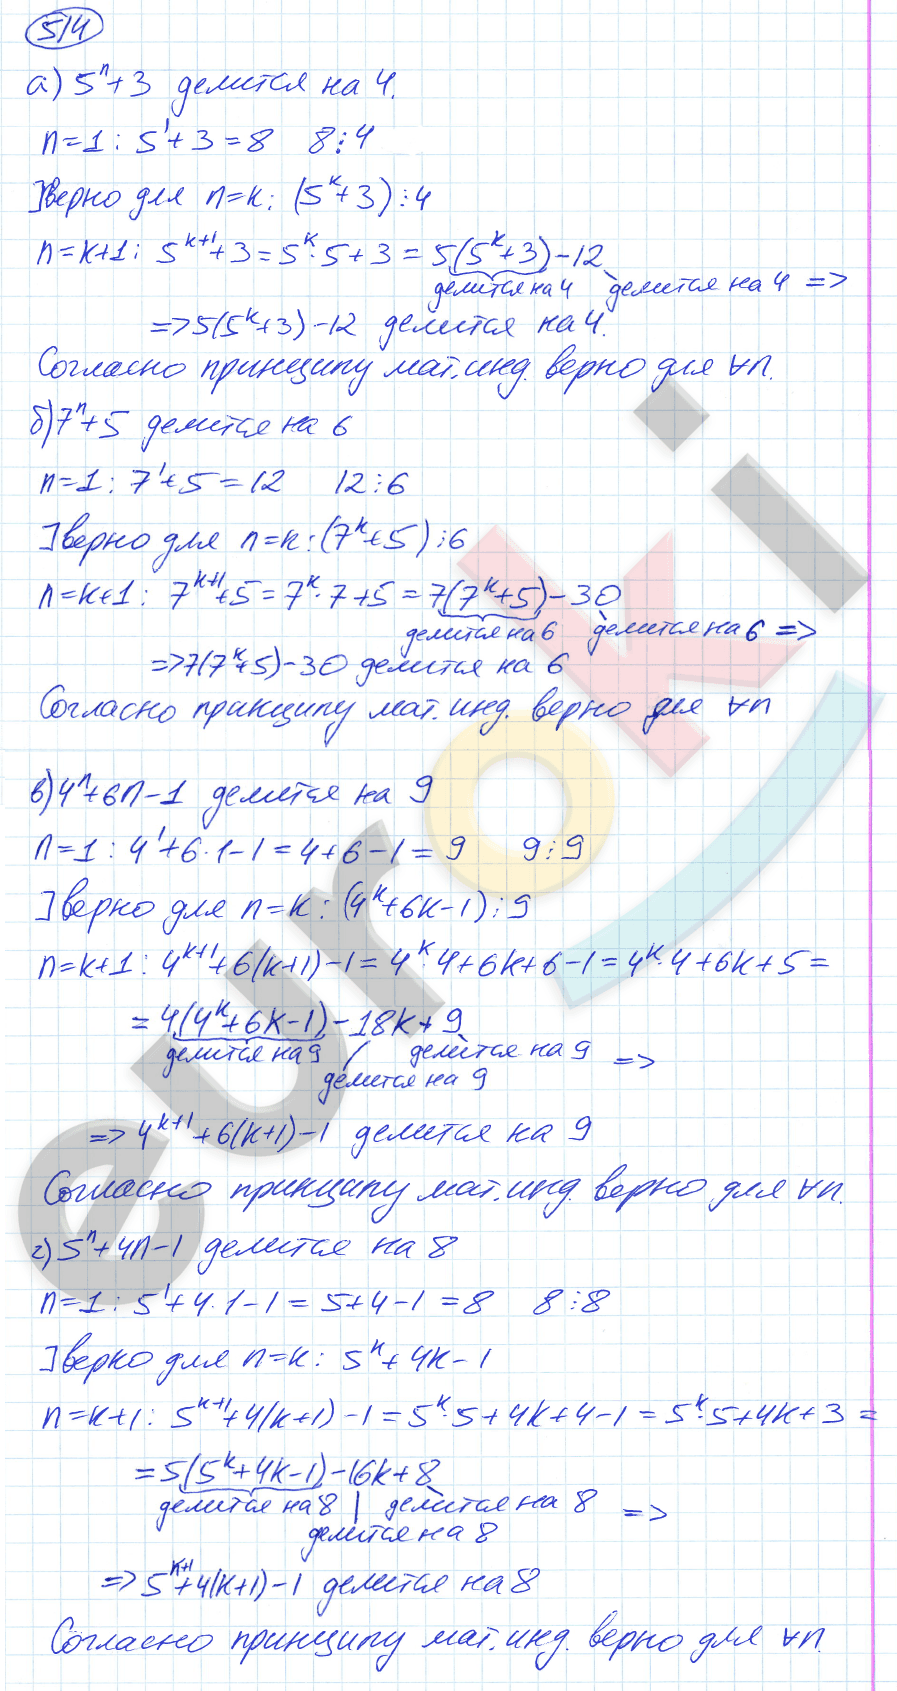 514
а) 5ⁿ+3 делится на 4.
n=1: 5¹+3=8 8⋮4
]верно для n=k: (5ᵏ+3)⋮4
n=k+1: 5ᵏ⁺¹+3=5ᵏ·5+3=5(5ᵏ+3)-12
делится на 4 делится на 4 =>
=>5(5ᵏ+3)-12 делится на 4.
Согласно принципу мат.инд. верно для ∀n.
б) 7ⁿ+5 делится на 6
n=1: 7¹+5=12 12⋮6
]верно для n=k: (7ᵏ+5)⋮6
n=k+1: 7ᵏ⁺¹+5=7ᵏ·7+5=7(7ᵏ+5)-30
делится на 6 делится на 6 =>
=>7(7ᵏ+5)-30 делится на 6
Согласно принципу мат.инд. верно для ∀n
в) 4ⁿ+6n-1 делится на 9
n=1: 4¹+6·1-1=4+6-1=9 9⋮9
]верно для n=k: (4ᵏ+6k-1)⋮9
n=k+1: 4ᵏ⁺¹+6(k+1)-1=4ᵏ·4+6k+6-1=4ᵏ·4+6k+5=
=4(4ᵏ+6k-1)-18k+9
делится на 9 делится на 9 =>
делится на 9
=>4ᵏ⁺¹+6(k+1)-1 делится на 9
Согласно принципу мат.инд. верно для ∀n.
г) 5ⁿ+4n-1 делится на 8
n=1: 5¹+4·1-1=5+4-1=8 8⋮8
]верно для n=k: 5ᵏ+4k-1
n=k+1: 5ᵏ⁺¹+4(k+1)-1=5ᵏ·5+4k+4-1=5ᵏ·5+4k+3=
=5(5ᵏ+4k-1)-16k+8
делится на 8 делится на 8 =>
делится на 8
=>5ᵏ⁺¹+4(k+1)-1 делится на 8
Согласно принципу мат.инд. верно для ∀n.
euroki